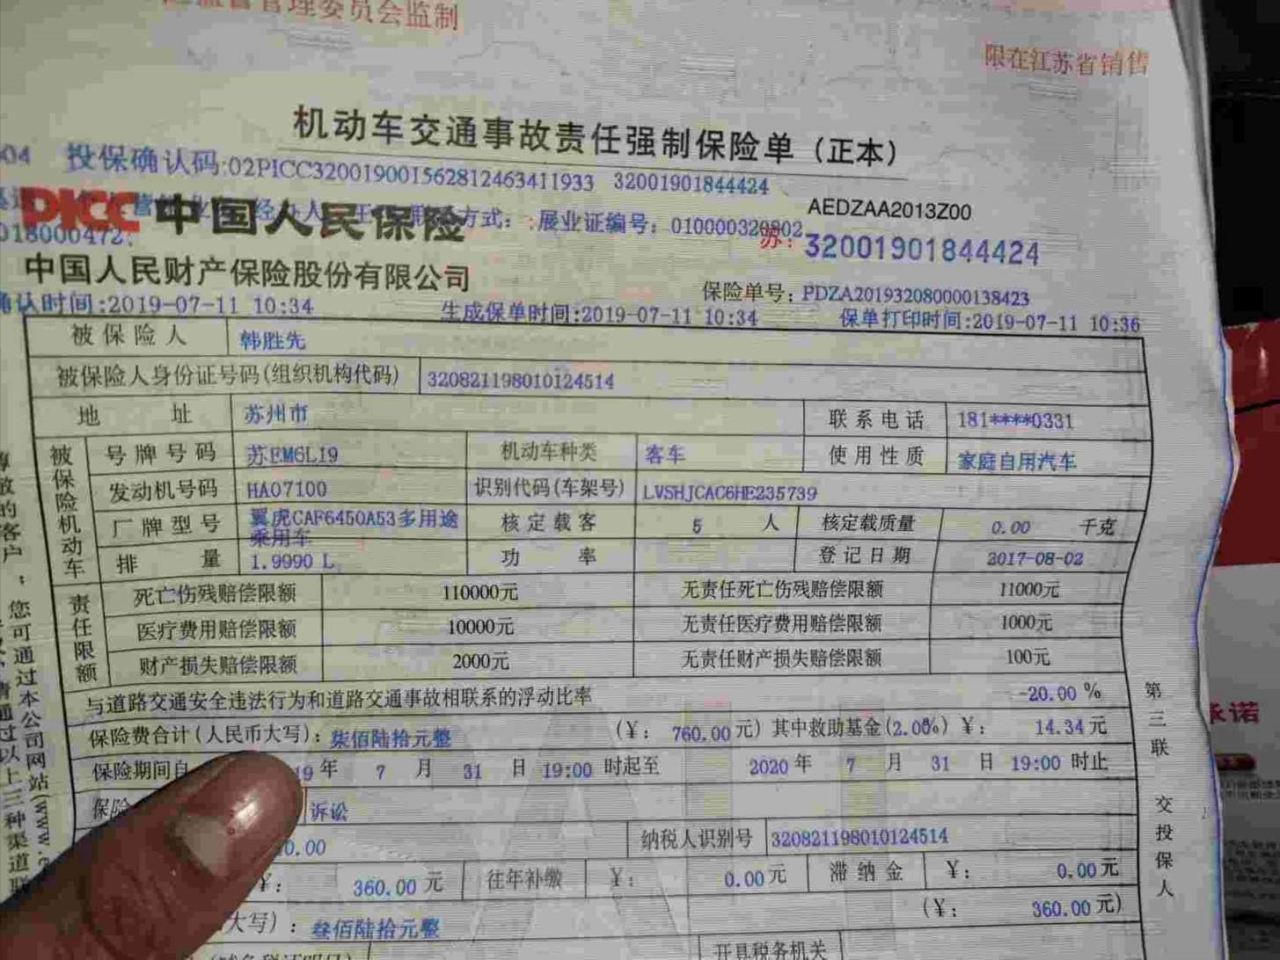 监督管理委员会监制
限在江苏省销售
机动车交通事故责任强制保险单 (正本)
投保确认码:02PICC320019001562812463411933 32001901844424
AEDZAA2013Z00
PICC 中国人民保险
联系方式: 展业证编号: 010000320802
018000472
苏: 32001901844424
中国人民财产保险股份有限公司
保险单号: PDZA201932080000138423
确认时间:2019-07-11 10:34 生成保单时间:2019-07-11 10:34 保单打印时间:2019-07-11 10:36
被保险人 韩胜先
被保险人身份证号码(组织机构代码) 320821198010124514
地址 苏州市 联系电话 181****0331
被保险机动车
号牌号码 苏EM6L19 机动车种类 客车 使用性质 家庭自用汽车
发动机号码 HA07100 识别代码(车架号) LVSHJCAC6HE235739
厂牌型号 翼虎CAF6450A53多用途乘用车 核定载客 5 人 核定载质量 0.00 千克
排量 1.9990 L 功率 登记日期 2017-08-02
责任限额
死亡伤残赔偿限额 110000元 无责任死亡伤残赔偿限额 11000元
医疗费用赔偿限额 10000元 无责任医疗费用赔偿限额 1000元
财产损失赔偿限额 2000元 无责任财产损失赔偿限额 100元
与道路交通安全违法行为和道路交通事故相联系的浮动比率 -20.00 %
保险费合计(人民币大写): 柒佰陆拾元整 (¥: 760.00 元) 其中救助基金(2.00%) ¥: 14.34 元
保险期间自 19 年 7 月 31 日 19:00 时起至 2020 年 7 月 31 日 19:00 时止
保险 诉讼
0.00 纳税人识别号 320821198010124514
¥: 360.00 元 往年补缴 ¥: 0.00 元 滞纳金 ¥: 0.00 元
大写): 叁佰陆拾元整 (¥: 360.00 元)
开具税务机关
第三联 交投保人
的客户: 您可通过本公司网站www.
通过以上三种渠道联
承诺